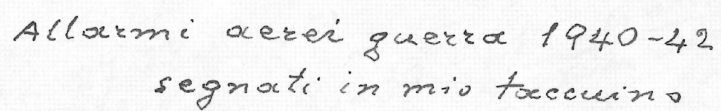 Allarmi aerei guerra 1940-42
segnati in mio taccuino